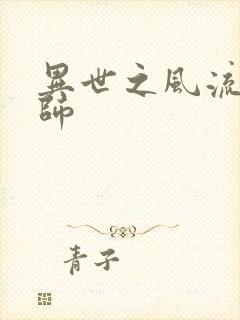 異世之風流
師
青子